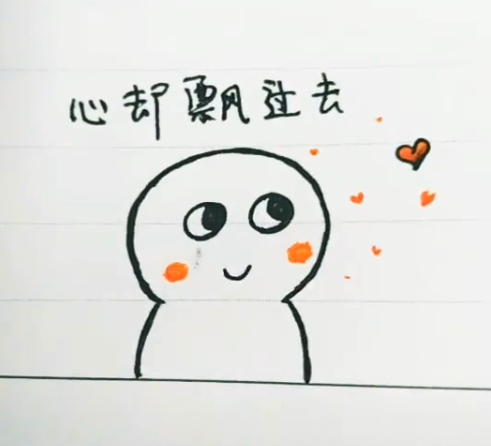 心却飘过去